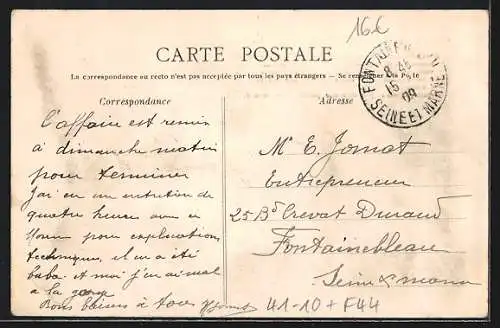 16€
CARTE POSTALE
La correspondance au recto n'est pas acceptée par tous les pays étrangers — Se renseigner à la Poste
Correspondance
Adresse
FONTAINEBLEAU
8 45
15
09
SEINE ET MARNE
L'affaire est remis
à dimanche matin
pour terminer
J'ai eu un entretien de
quatre heure avec
pour explications
techniques, il en a été
baba. et moi j'en ai mal
à la gorge
Bons baisers à tous
Mr E. Jomat
Entrepreneur
25 Bd Crevat Durand
Fontainebleau
Seine & marne
41-10 + F44